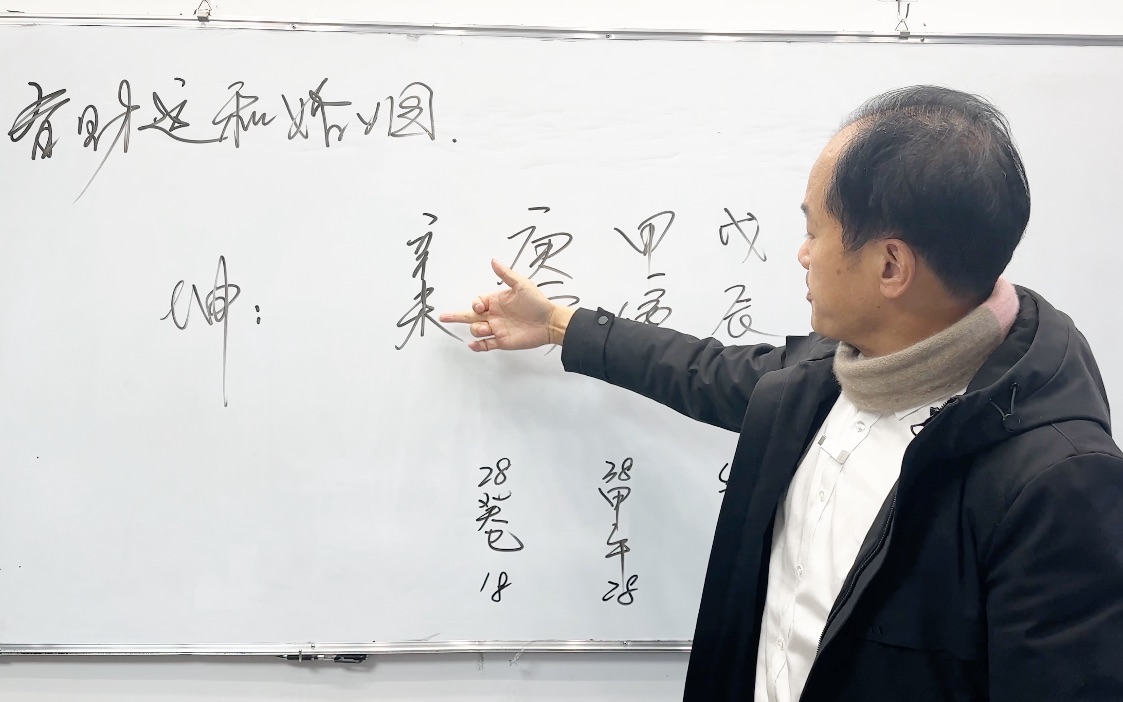 看财运和婚姻.
坤:
辛 庚 甲 戊
未 寅 辰
28 38
癸 甲
巳 午
18 28